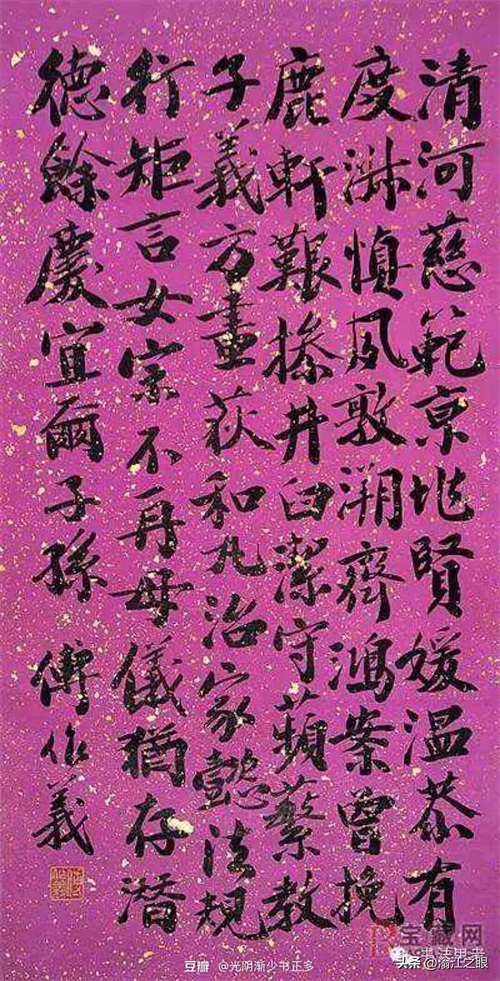 清河慈範京兆賢媛溫恭有
度淑慎夙敦溯齊鴻案曾挽
鹿軒艱操井臼潔守蘋蘩教
子義方畫荻和丸治家懿法規
行矩言女宗不再母儀猶存潛
德餘慶宜爾子孫 傅作義
宝藏网
豆瓣 @光阴渐少书正多
头条 @渝江之眼